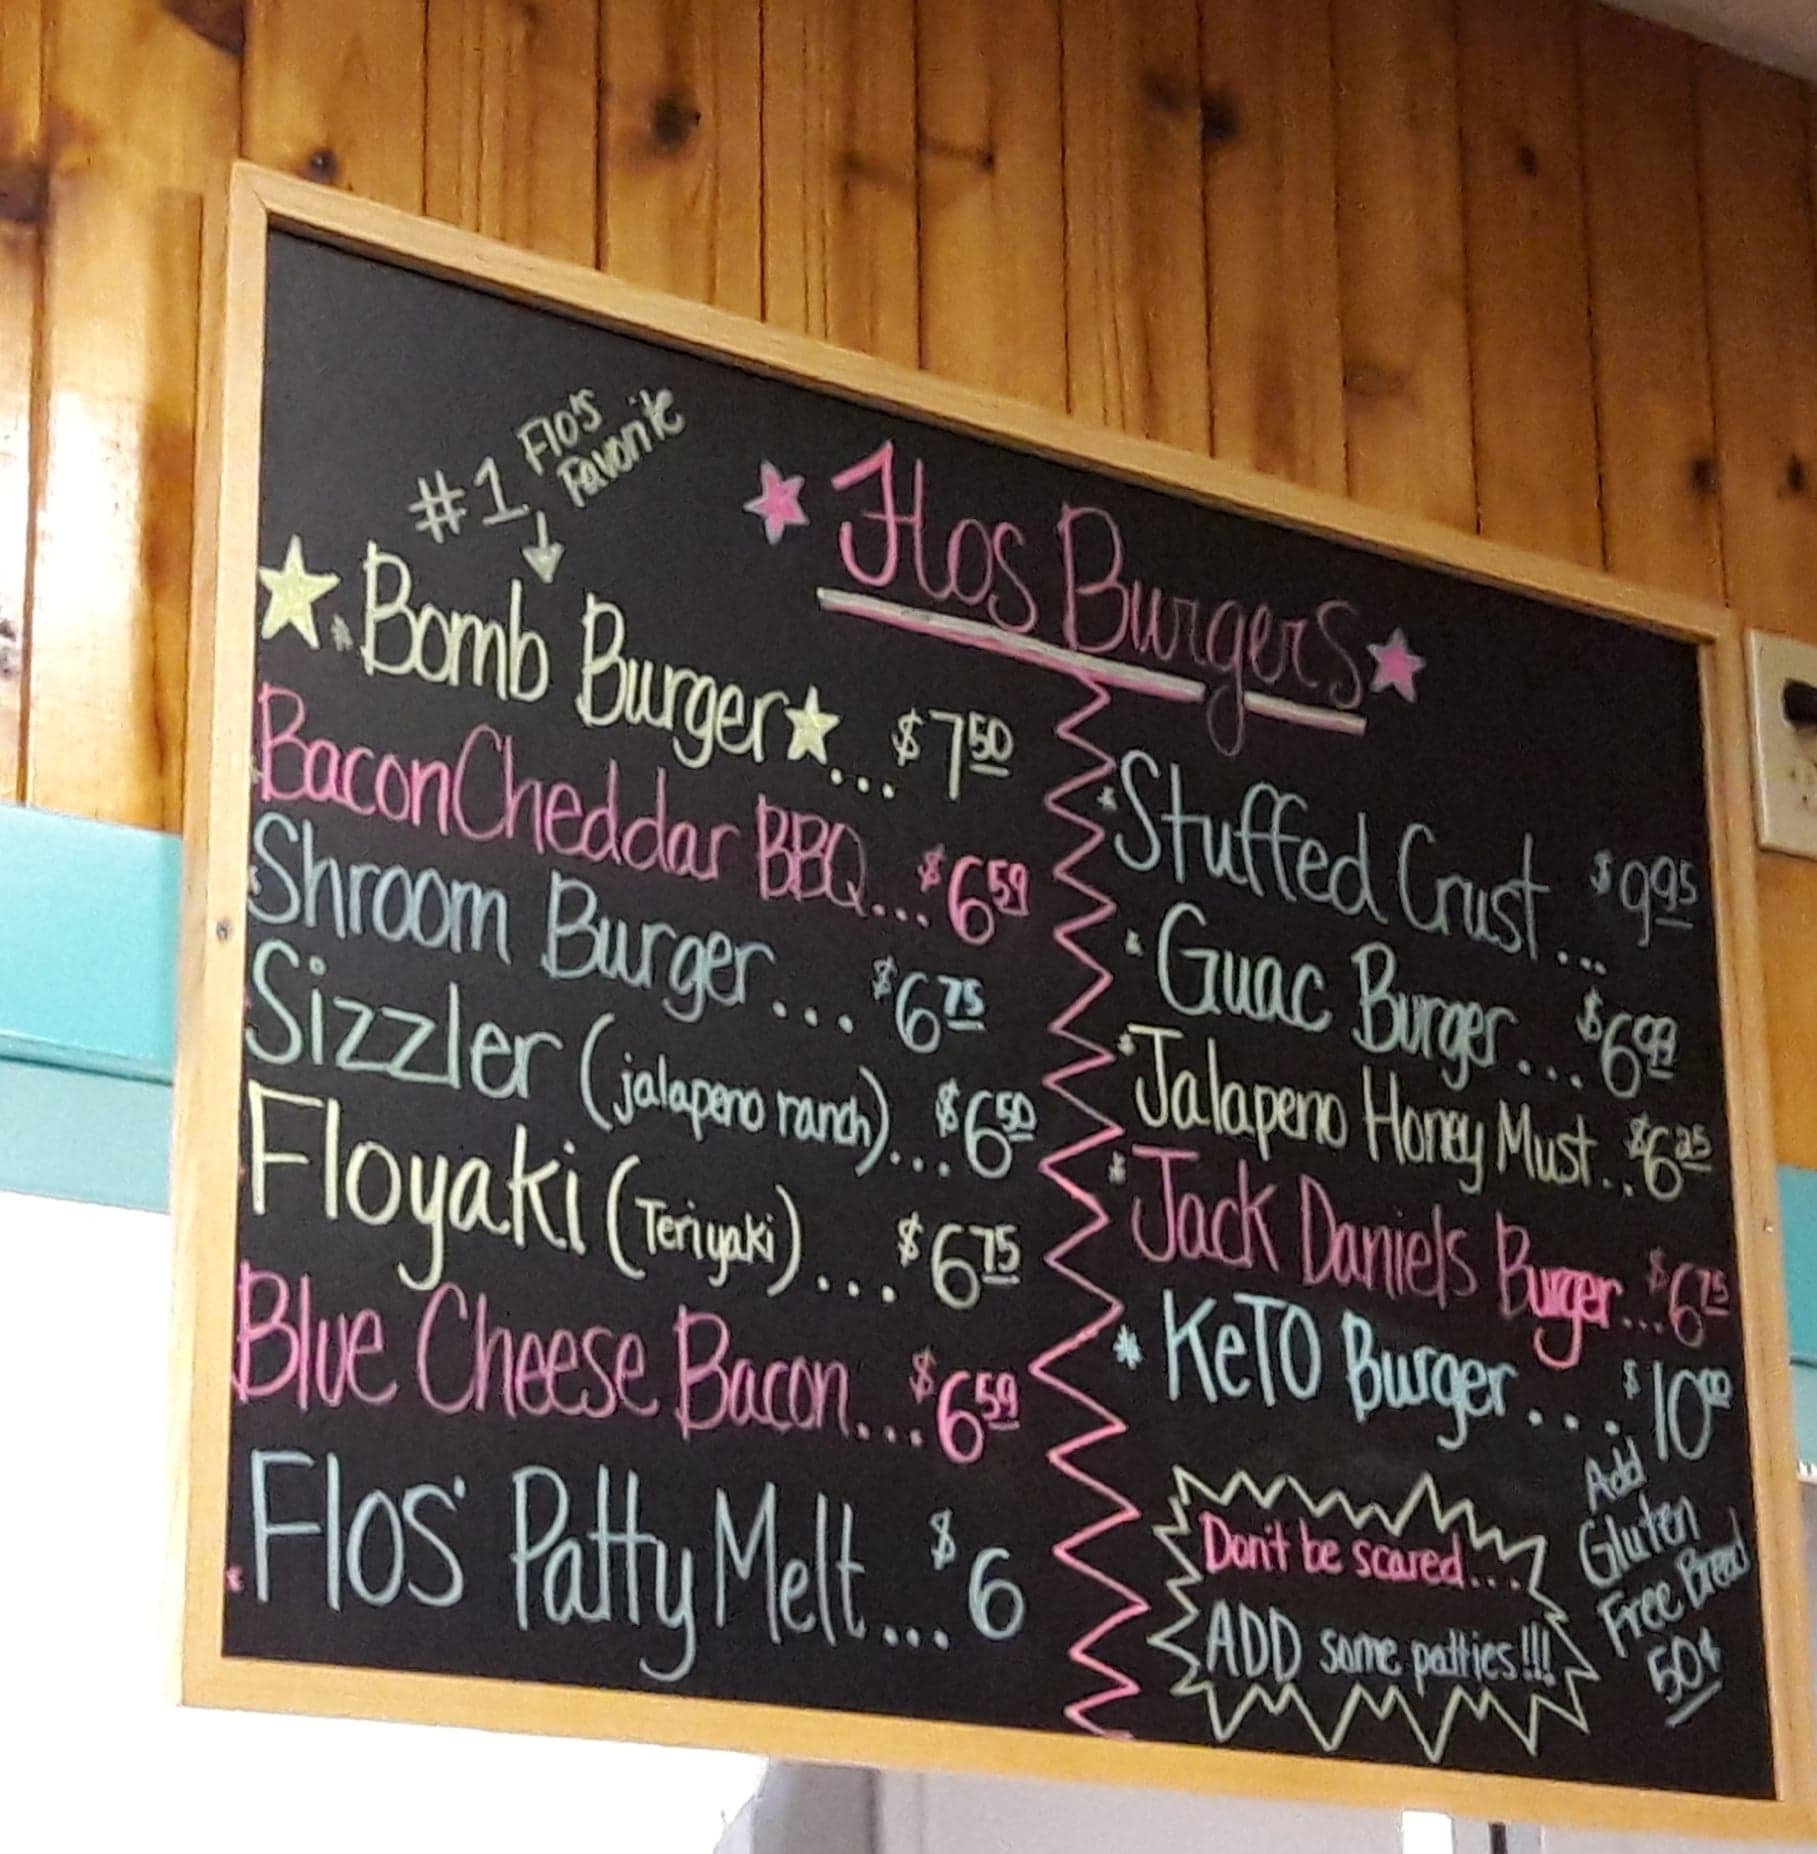 #1 Flo's
Favorite
Flos Burgers
Bomb Burger... $7 50
BaconCheddar BBQ... $6 59
Shroom Burger... $6 75
Sizzler (jalapeno ranch)... $6 50
Floyaki (Teriyaki)... $6 75
Blue Cheese Bacon... $6 59
Flos' Patty Melt... $6
Stuffed Crust... $9 95
Guac Burger... $6 99
Jalapeno Honey Must.. $6 25
Jack Daniels Burger... $6 75
* KeTO Burger.... $10 00
Add
Gluten
Free Bread
50¢
Don't be scared...
ADD some patties!!!